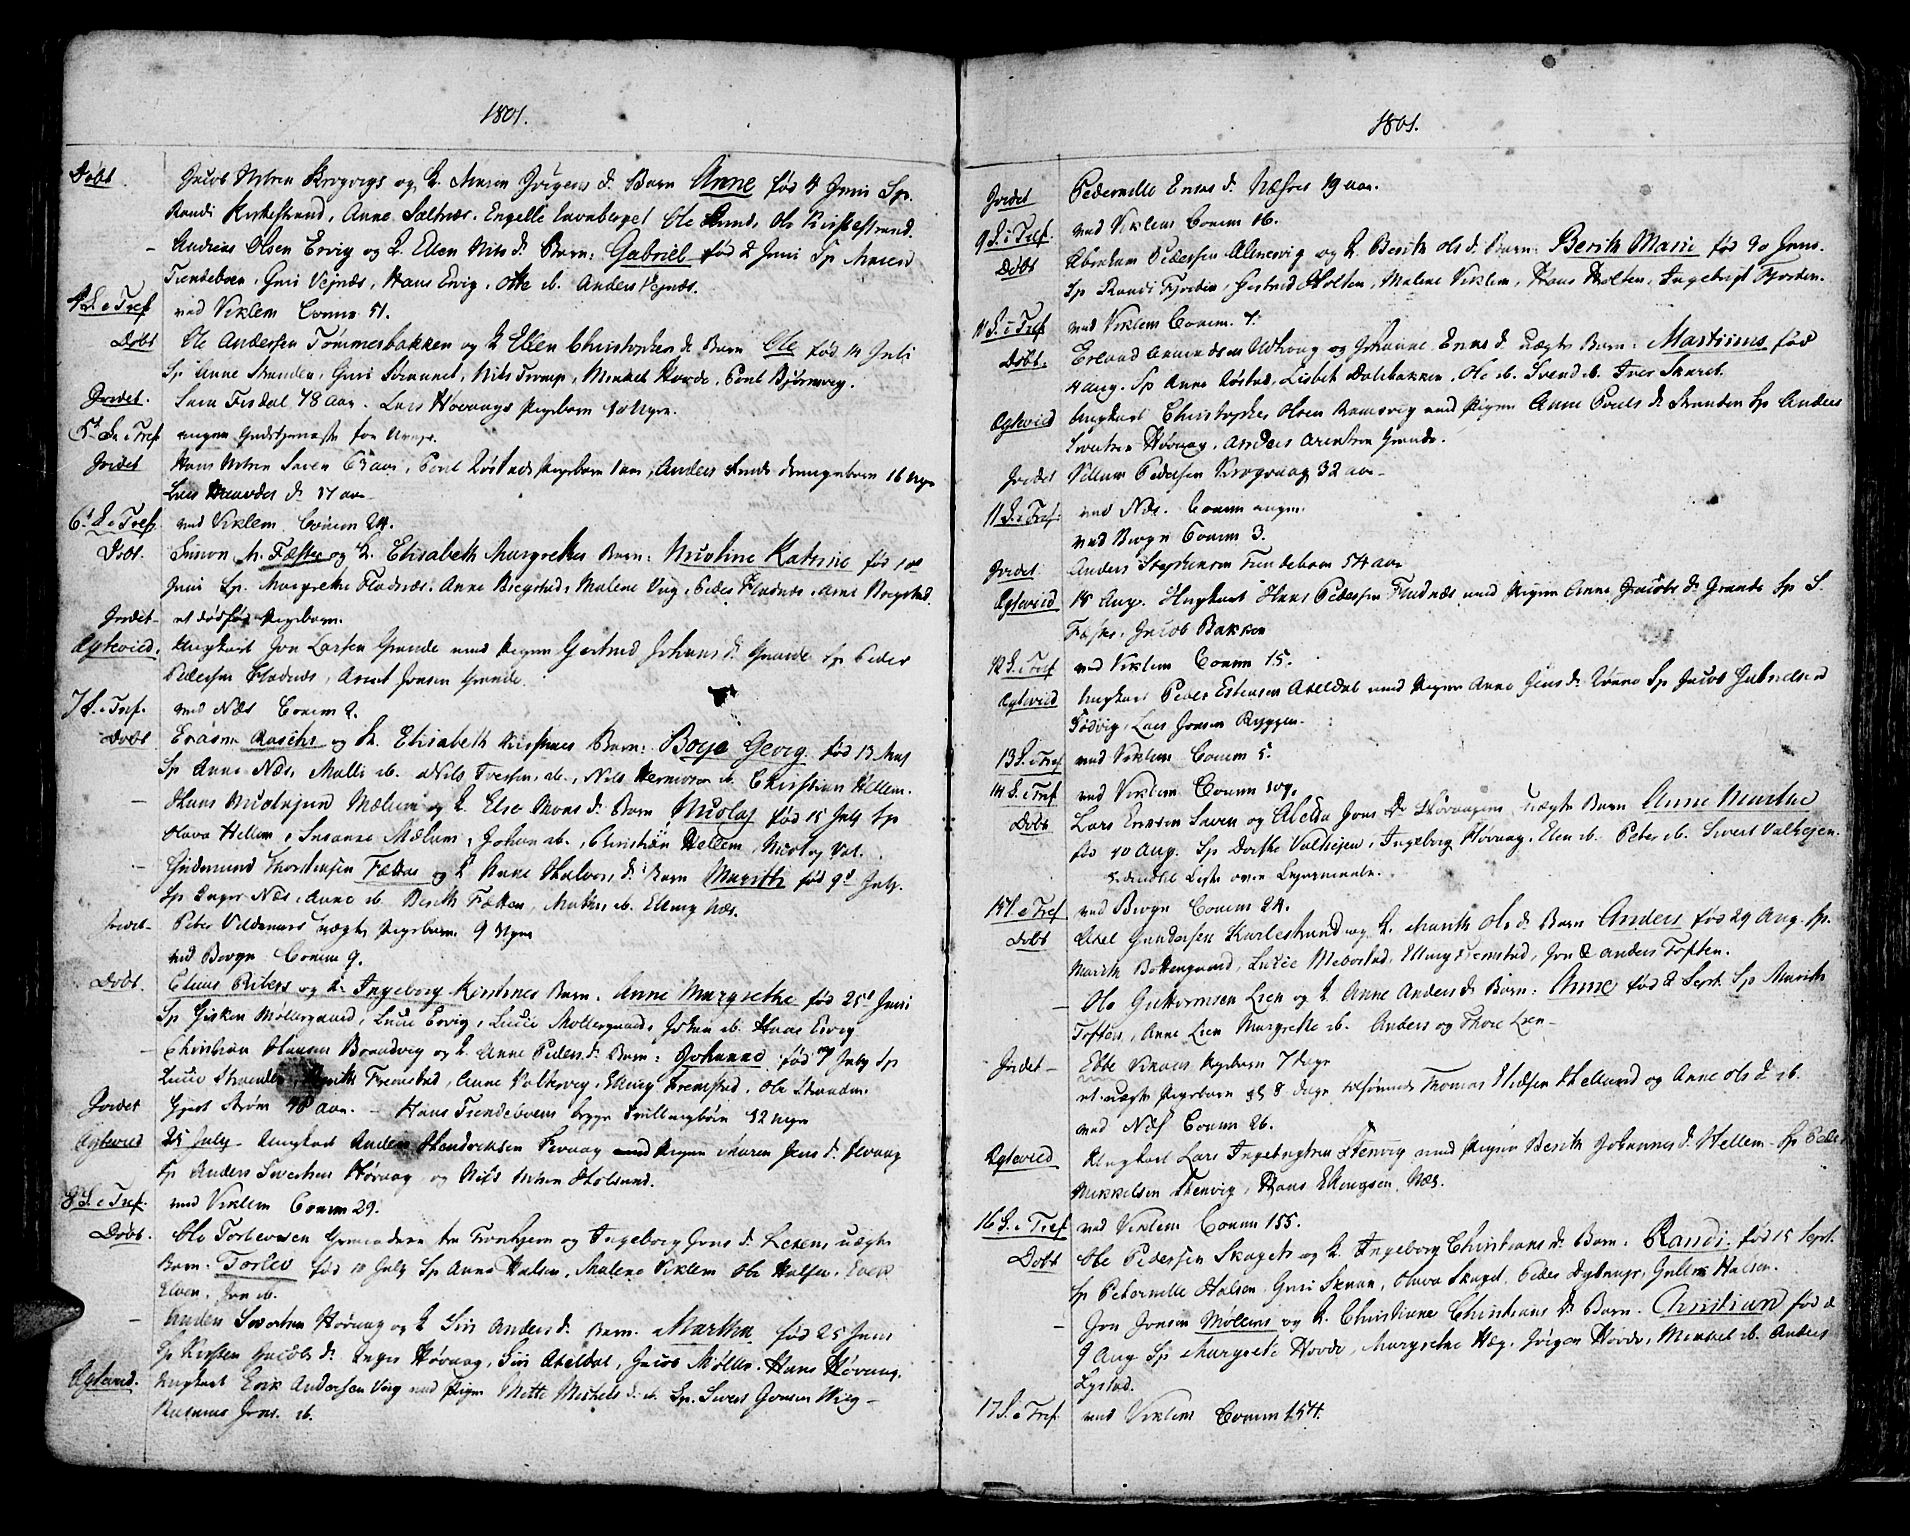 1801.
Døbt. Jacob Krogvigs og H. Maren Jørgens D. Barn Anne fød 4 Juni Sp.
Randi Kirkestrand, Anne Sæltnæs, Engelle Ole Lund, Ole Kirkestrand.
- Andreas Olsen Ervig og H. Elen Nils D. Barn: Gabriel fød 2 Juni Sp Maren
Tindeboen, Guri Vejnæs, Hans Ervig, Otte ib. Anders Vejnæs.
4 S. e Tref ved Viklem Comm 51.
Døbt Ole Andersen Tømmesbakken og H Elen Christophers D. Barn Ole fød 14 Juli
Sp Anne Stranden, Guri Nils Troup, Michel Hovde, Poul Bjørnvig.
Jordet. Sara Fisdal 78 aar. Lars Hovaags Pigebarn
5t S. e Tref ingen Gudstjeneste
Jordet Hans Saxen aar, Poul Røstads Pigebarn 1 aar, Anders Lunds drengebarn 16 uger
Lars D. 17 aar
6t S. e Tref. ved Viklem Comm 24.
Døbt. Simon M. Fæster og H. Elisabeth Margrethes Barn: Nicoline Katrine fød 1ste
Juni Sp. Margrethe Fladnæs, Anne Bregstad, Malene Uug, Peder Fladnæs, Arne Bregstad
Jordet et dødfød Pigebarn.
Egteviid. Ungkarl Jon Larsen Grande med Pigen Gertrud Johans D. Grande Sp Peder
Pedersen Fladnæs, Arent Jonsen Grande.
7 S. e Tref. ved Næs Comm 2.
Døbt Erasm Raschs og Fr. Elisabeth Kirstines Barn: Borge Georg fød 13 Maj
Sp Anne Næs, Malli ib. Nils Iversen, ib., Nils Hermoe ib. Christian Hellem.
- Hans Nicolajsen Mælum og H. Else Mons D. Barn Nicolaj fød 15 July Sp
Olava Hellem, Susanna Mælum, Johan ib. Christian Hellem, Nicolay Val.
- Gudmund Thorstensen Fætten og H Anne Halvors D. Barn Marith fød 9d July.
Sp Inger Næs, Anne ib. Berith Fætten, Mathis ib. Elling Næs.
Jordet- Peter Vildemars uægte Pigebarn. 9 Uger
ved Bergn Comm 9.
Døbt. Claus Ribers og H. Ingeborg Kirstines Barn. Anne Margrethe fød 25d Juni
Sp Gisken Møllergaard, Lucie Ervig, Lucie Møllergaard, Johan ib. Hans Ervig
- Christian Hansen Brandvig og H. Anne Peders D. Barn: Johanna fød 7 July Sp
Lucie Stranden, Marith Fremstad, Anne Valtervig, Elling Fremstad, Ole Stranden.
Jordet Gjert Strøm 78 aar. - Hans Tindeboens begge Trillingbørn 12 uger
Egteviid 25 July - Ungkarl Anders Hendrichsen Fevaag med Pigen Maren Jens D. Hovaag
Sp Anders Sivertsen Hovaag og Nils Holsund.
8 S. e Tref. ved Viklem Comm 29.
Døbt. Ole Torlevsen Grenadeer fra Tronhjem og Ingeborg Jons D. Lexens uægte
Barn. Torlev fød 10 July Sp Anne Halsen, Malene Viklem Ole Halsen, Erik
Elven, Jon ib.
- Anders Sivertsen Hovaag og H Siri Anders D. Barn. Marthen fød 25 Juni
Sp Kirsten Jacobs D. Inger Hovaag, Siri Abeldal, Jacob Møller, Hans Hovaag.
Egteviid. Ungkarl Erik Andersen Uug med Pigen Mette Michels D. ib. Sp. Sivert Jonsen Uug -
Rasmus Jons. ib.
1801.
Jordet Pedernille Enes D. Næsset 19 aar.
9 S. e Tref. ved Viklem Comm 16.
Døbt Abraham Pedersen Almevig og H Berith Ols D. Barn: Berith Marie fød 30 Juni.
Sp Randi Fjorden, Gertrud Holten, Malene Viklem, Hans Holten, Ingebrigt Fjorden.
10 S. e Tref ved Viklem Comm. 7.
Døbt. Erland Udhoug og Johanne Enes D. uægte Barn: Martinus fød
4 Aug. Sp Anne Røstad, Lisbet Dalebakken, Ole ib. Svend ib. Iver Skaret.
Egteviid Ungkarl Christopher Olsen Ramsvig med Pigen Anne Pouls D. Stranden Sp Anders
Sivertsen Hovaag, Anders Arentsen Grande.
Jordet Villum Pedersen Krogvaag 32 aar -
11 S. e Tref. ved Næs. Comm ingen.
ved Bergn Comm 3.
Jordet Anders Stephensen Tindeboen 54 aar
Egteviid 18 Aug. Ungkarl Hans Pedersen Fladnæs med Pigen Anne Jacobs D. Grande Sp S.
Fæster, Jacob Bakken
12 S. e Tref ved Viklem Comm 15.
Egteviid Ungkarl Peder Estensen Abeldal med Pigen Anne Jens D. Rønne Sp Jacob
Lars Jonsen Ryggen.
13 S. e Tref ved Viklem Comm 5.
14 S. e Tref ved Viklem Comm 109.
Døbt Lars Ensen Saxen og Abelda Jons D. Hovaagens uægte Barn Anne Marthe
fød 10 Aug. Sp Dorthe Valhejen, Ingeborg Hovaag, Elen ib. Peter ib. Sivert Valhejen.
Liste over Lejermaale.
15 S. e Tref ved Bergn Comm 24.
Døbt Axel Gundersen Karlestrand og H. Marith Ols D. Barn Anders fød 29 Aug. Sp.
Marith Bottengaard, Lucie Mebostad, Elling Fremstad, Jon & Anders Toften.
- Ole Guttormsen Lien og H Anne Anders D. Barn: Anne fød 2 Sept. Sp Marith
Toften, Anne Lien Margrethe ib. Anders og Thore Lien -
Jordet - Ebbe Pigebarn 7 Uger
et uægte Pigebarn 8 Dage, tilhørende Thomas Hellund og Anne Ols D. ib.
ved Næs Comm 26.
Egteviid Ungkarl Lars Ingebrigtsen Stenvig med Pigen Berith Johannes D. Hellem - Sp Peder
Mikkelsen Stenvig, Hans Ellingsen Næs.
16 S. e Tref ved Viklem Comm 155.
Døbt Ole Pedersen Skagets og H Ingeborg Christians D. Barn. Randi. fød 15 Sept.
Sp Pedernille Halsen, Guri Skaan, Olava Skaget, Peder Dybrup, Gullik Halsen.
- Jon Jonsen Møllens og H Christiane Christians D. Barn. Christian fød d
9 Aug Sp Margrete Hovde, Margrethe Hæg, Jørgen Hovde, Mikkel ib. Anders
Lystad.
17 S. e Tref. ved Viklem Comm 154.